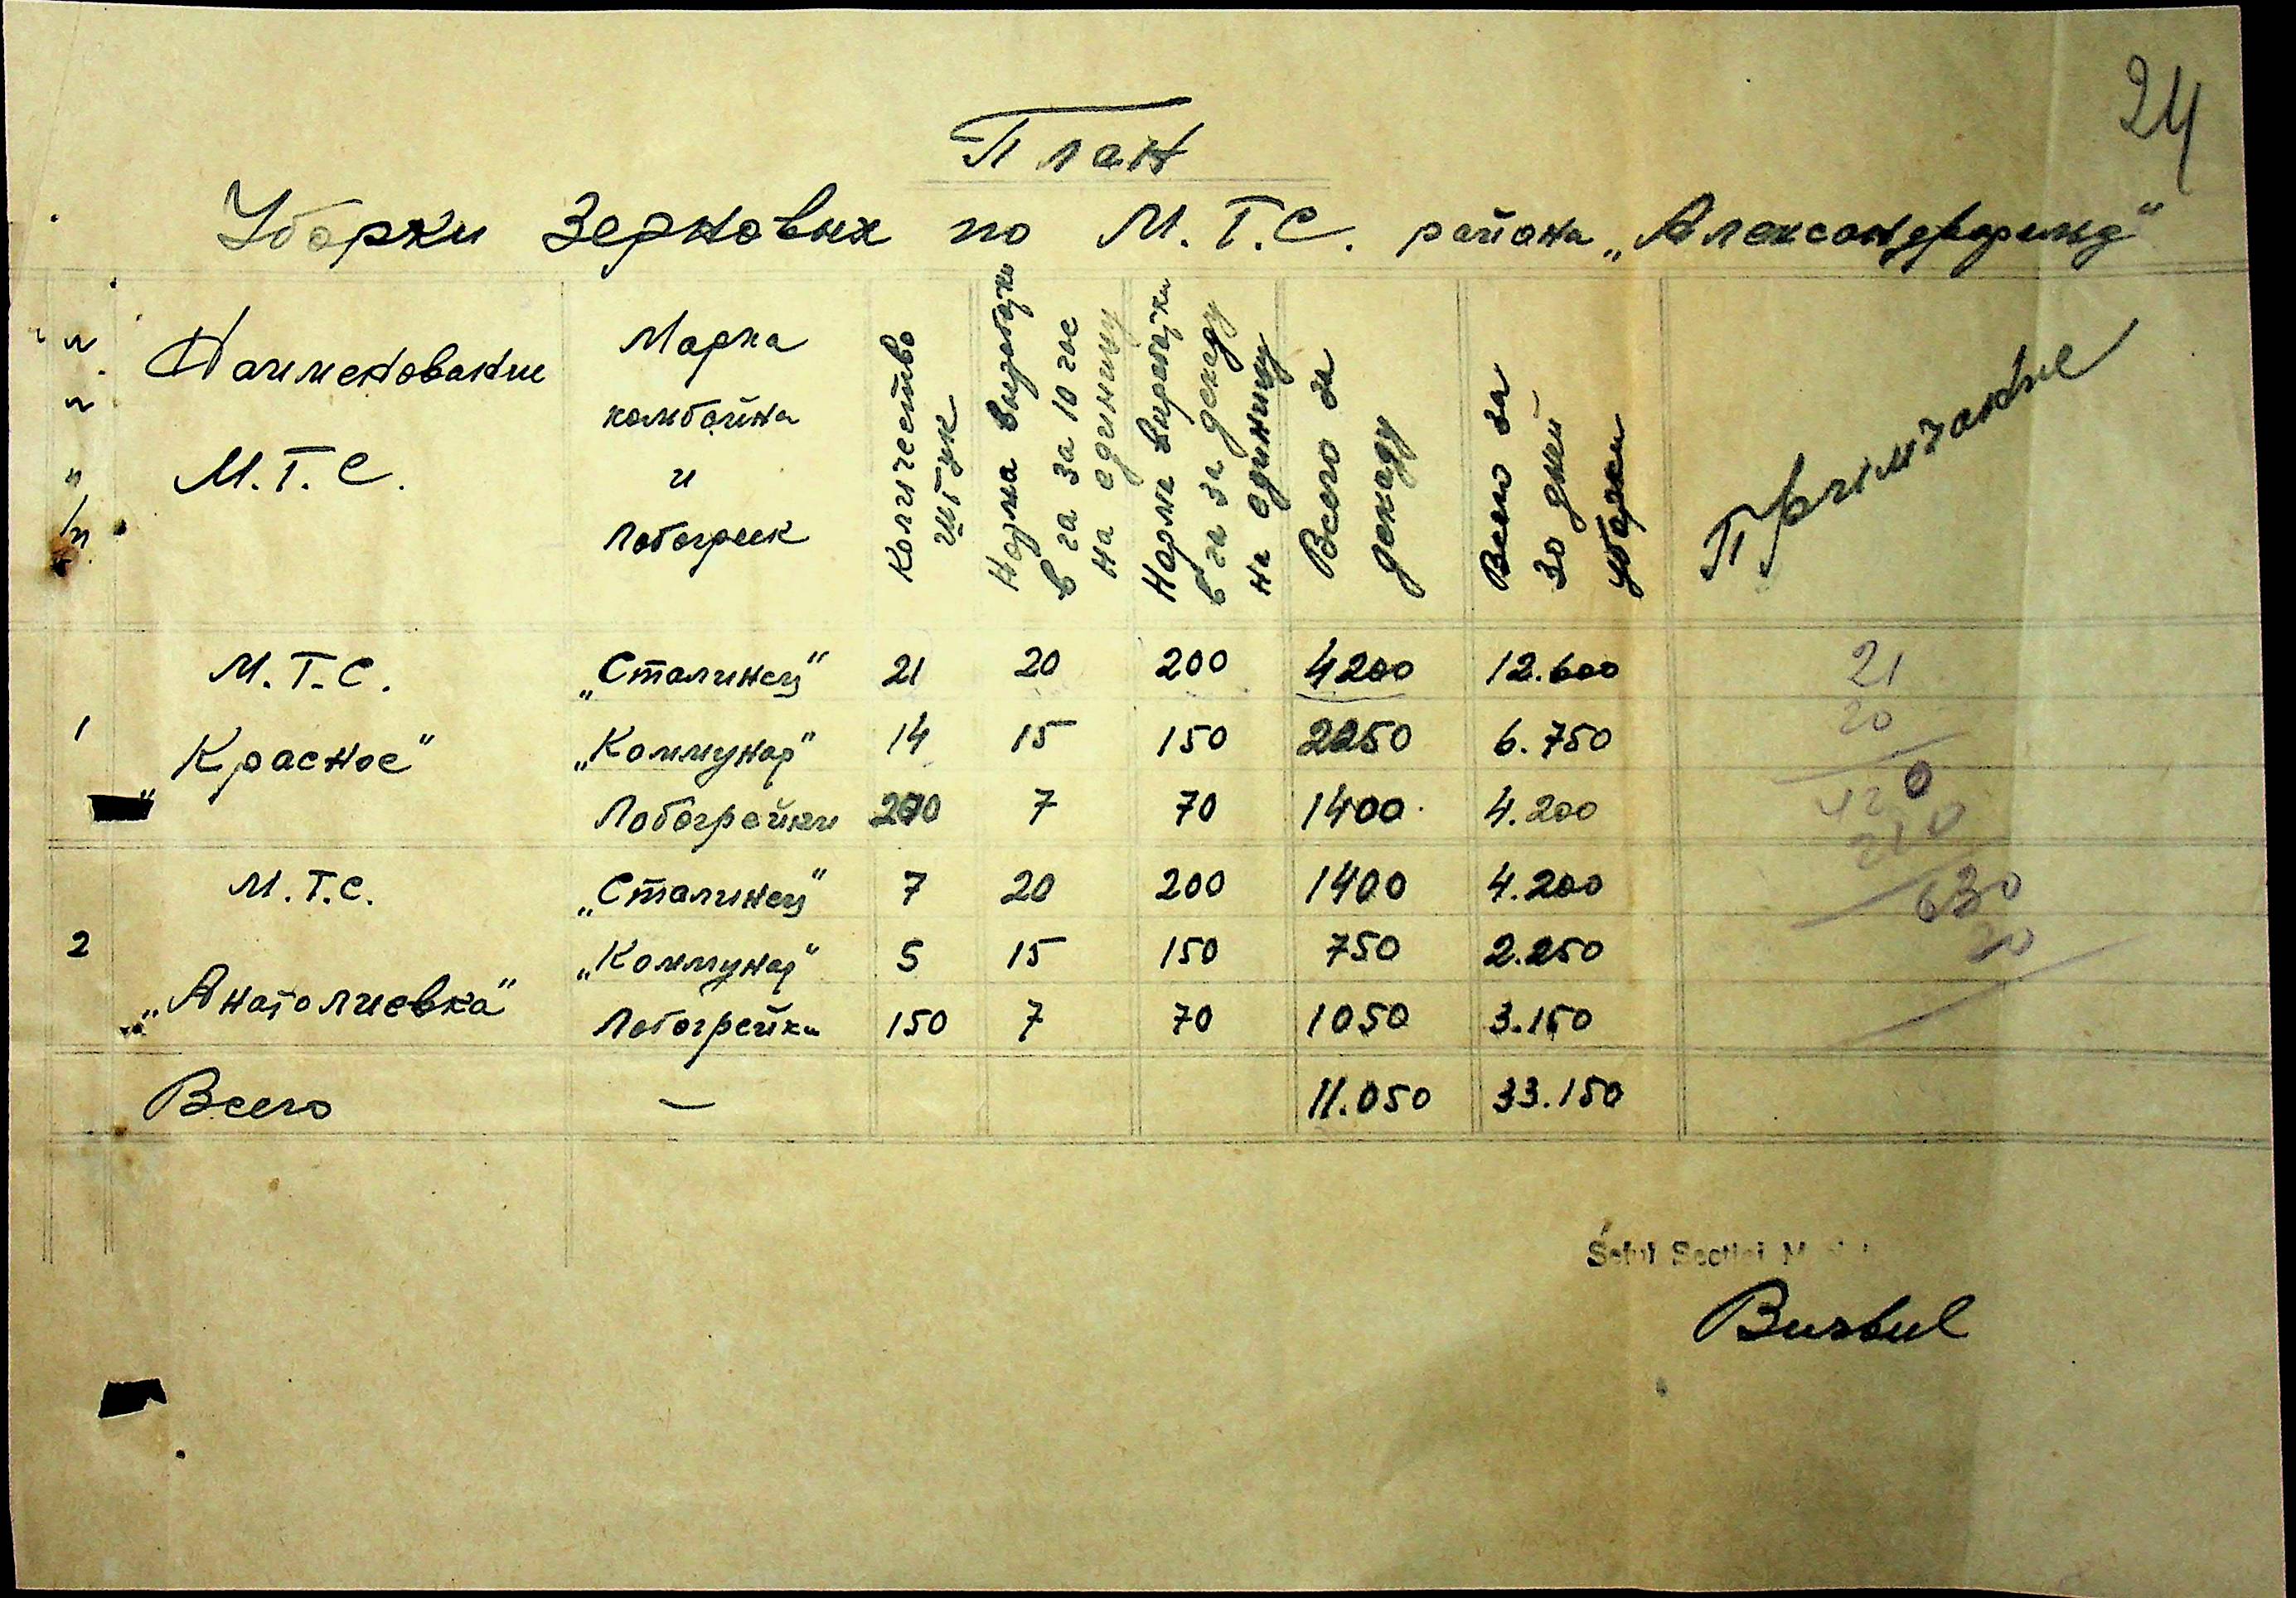 24
План
Уборки Зерновых по М.Т.С. района „Александрфельд"
Наименование М.Т.С.
Марка комбайна и Лобогреек
Количество штук
Норма выработки в га за 10 час на единицу
Норма выработки в га за декаду на единицу
Всего за декаду
Всего за 30 дней уборки
Примечание
М.Т.С. „Сталинец" 21 20 200 4200 12.600 21
1 „Красное" „Коммунар" 14 15 150 2250 6.750 20
Лобогрейки 200 7 70 1400 4.200 420
210
М.Т.С. „Сталинец" 7 20 200 1400 4.200 630
2 „Анатолиевка" „Коммунар" 5 15 150 750 2.250 20
Лобогрейки 150 7 70 1050 3.150
Всего — 11.050 33.150
Șeful Secției